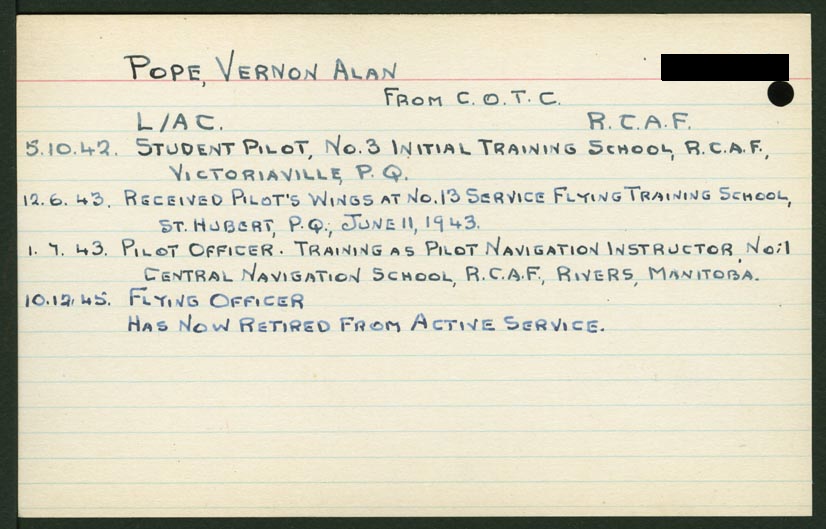 POPE, VERNON ALAN
FROM C.O.T.C.
L/AC. R.C.A.F.
5.10.42. STUDENT PILOT, NO.3 INITIAL TRAINING SCHOOL, R.C.A.F.,
VICTORIAVILLE, P.Q.
12.6.43. RECEIVED PILOT'S WINGS AT NO.13 SERVICE FLYING TRAINING SCHOOL,
ST. HUBERT, P.Q., JUNE 11, 1943.
1.7.43. PILOT OFFICER. TRAINING AS PILOT NAVIGATION INSTRUCTOR, NO.1
CENTRAL NAVIGATION SCHOOL, R.C.A.F., RIVERS, MANITOBA.
10.12.45. FLYING OFFICER
HAS NOW RETIRED FROM ACTIVE SERVICE.